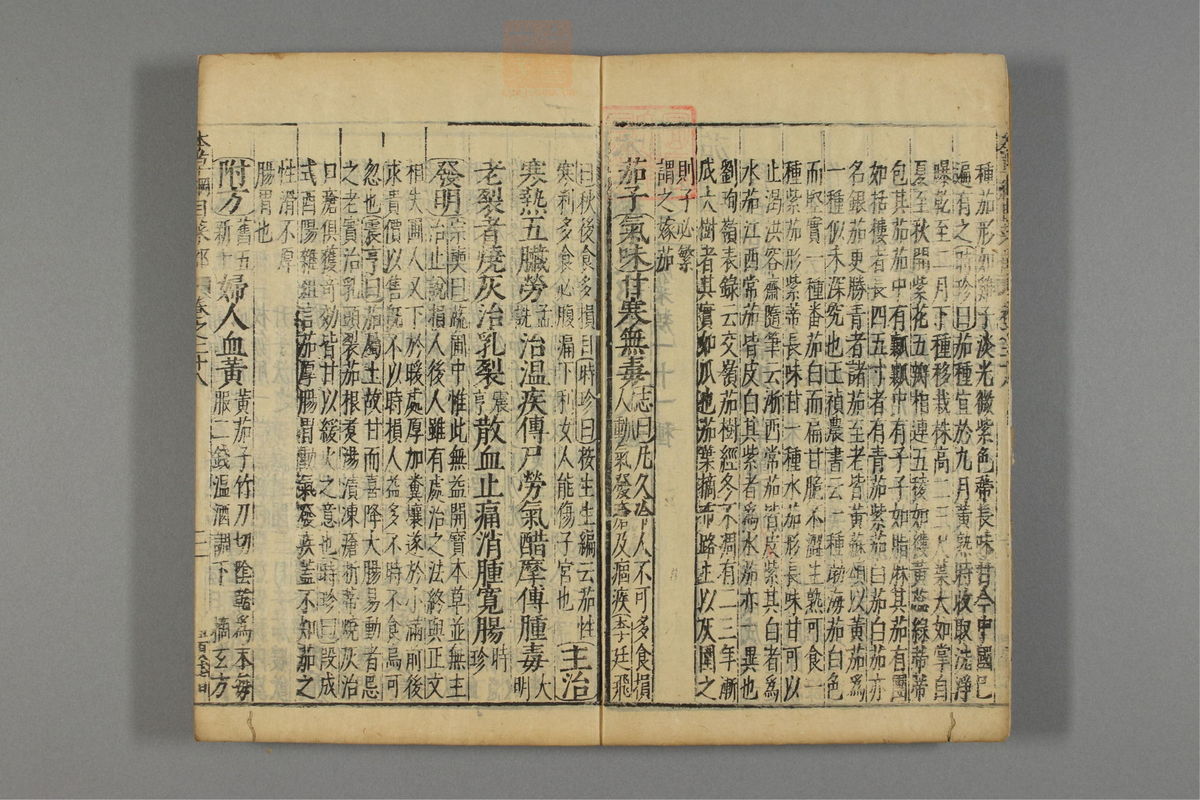 種茄形如雞子淡光微紫色蒂長味甘今中國已
遍有之時珍曰茄種宜於九月黃熟時收取洗淨
曝乾至二月下種移栽株高二三尺葉大如掌自
夏至秋開紫花五瓣相連五稜如縷黃蕊綠蒂蒂
包其茄茄中有瓤瓤中有子子如脂麻其茄有團
如栝樓者長四五寸者有青茄紫茄白茄白茄亦
名銀茄更勝青者諸茄至老皆黃蘇頌以黃茄為
一種似未深究也王禎農書云一種渤海茄白色
而堅實一種番茄白而扁甘脆不澀生熟可食一
種紫茄形紫蒂長味甘一種水茄形長味甘可以
止渴洪容齋隨筆云浙西常茄皆皮紫其白者為
水茄江西常茄皆皮白其紫者為水茄亦一異也
劉恂嶺表錄云交嶺茄樹經冬不凋有二三年漸
成大樹者其實如瓜也茄葉摘布路上以灰圍之
則子必繁
謂之嫁茄
茄子氣味甘寒無毒志曰凡久冷人不可多食損
人動氣發瘡及痼疾李廷飛
曰秋後食多損目時珍曰按生生編云茄性
寒利多食必腹痛下利女人能傷子宮也主治
寒熱五臟勞孟詵治溫疾傳尸勞氣醋摩傅腫毒大明
老裂者燒灰治乳裂震亨散血止痛消腫寬腸時珍
發明宗奭曰蔬圃中惟此無益開寶本草並無主
治止說損人後人雖有處治之法終與正文
相失圃人又下於暖處厚加糞壤遂於小滿前後
求貴價以售既不以時損人益多不時不食烏可
忽也震亨曰茄屬土故甘而喜降大腸易動者忌
之老實治乳頭裂茄根煮湯漬凍瘡折蒂燒灰治
口瘡俱獲奇効皆甘以緩火之意也時珍曰段成
式酉陽雜俎言茄厚腸胃動氣發疾蓋不知茄之
性滑不厚
腸胃也
附方舊五新十婦人血黃黃茄子竹刀切陰乾為末每
服二錢溫酒調下摘玄方